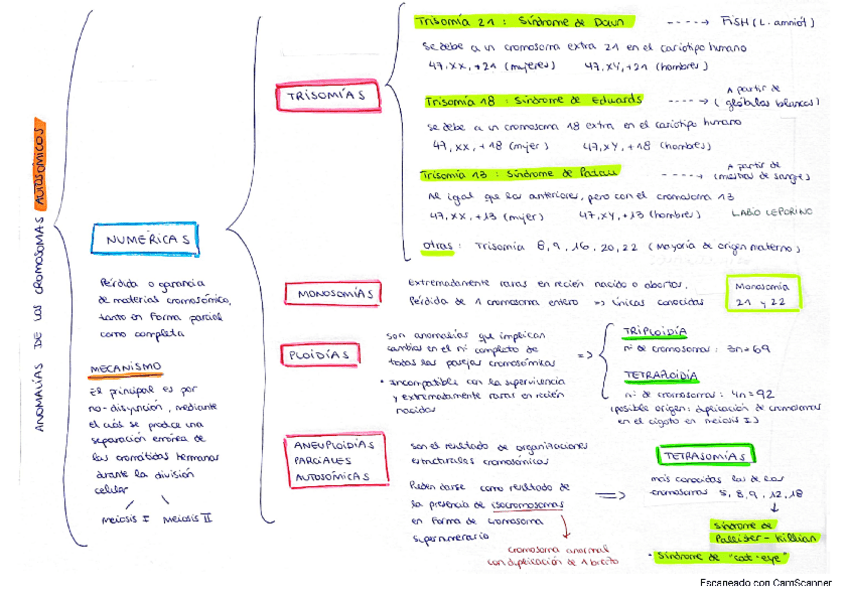 ANOMALÍAS DE LOS CROMOSOMAS AUTOSÓMICOS
NUMÉRICAS
Pérdida o ganancia
de material cromosómico,
tanto en forma parcial
como completa
MECANISMO
El principal es por
no-disyunción, mediante
el cuál se produce una
separación errónea de
las cromátidas hermanas
durante la división
celular
Meiosis I Meiosis II
TRISOMÍAS
Trisomía 21 : Síndrome de Down ----→ FISH (L. amniót)
Se debe a un cromosoma extra 21 en el cariotipo humano
47, XX, +21 (mujeres) 47, XY, +21 (hombres)
Trisomía 18 : Síndrome de Edwards ----→ A partir de
(glóbulos blancos)
se debe a un cromosoma 18 extra en el cariotipo humano
47, XX, +18 (mujer) 47, XY, +18 (hombres)
Trisomía 13 : Síndrome de Patau ----→ A partir de
(muestras de sangre)
Al igual que los anteriores, pero con el cromosoma 13
47, XX, +13 (mujer) 47, XY, +13 (hombres) LABIO LEPORINO
otras : Trisomía 8, 9, 16, 20, 22 (Mayoría de origen materno)
MONOSOMÍAS
Extremadamente raras en recién nacido o abortos.
Pérdida de 1 cromosoma entero => únicas conocidas
Monosomía
21 y 22
PLOIDÍAS
son anomalías que implican
cambios en el nº completo de
todas las parejas cromosómicas
• incompatible con la supervivencia
y extremadamente raras en recién
nacidos
=>
TRIPLOIDÍA
nº de cromosomas : 3n = 69
TETRAPLOIDÍA
nº de cromosomas : 4n = 92
(posible origen: duplicación de cromosomas
en el cigoto en meiosis I)
ANEUPLOIDÍAS
PARCIALES
AUTOSÓMICAS
son el resultado de organizaciones
estructurales cromosómicas
Pueden darse como resultado de
la presencia de isocromosomas
en forma de cromosoma
supernumerario
cromosoma anormal
con duplicación de 1 brazo
=>
TETRASOMÍAS
más conocidas las de los
cromosomas 5, 8, 9, 12, 18
Síndrome de
Pallister - Killian
• Síndrome de "cat-eye"
Escaneado con CamScanner